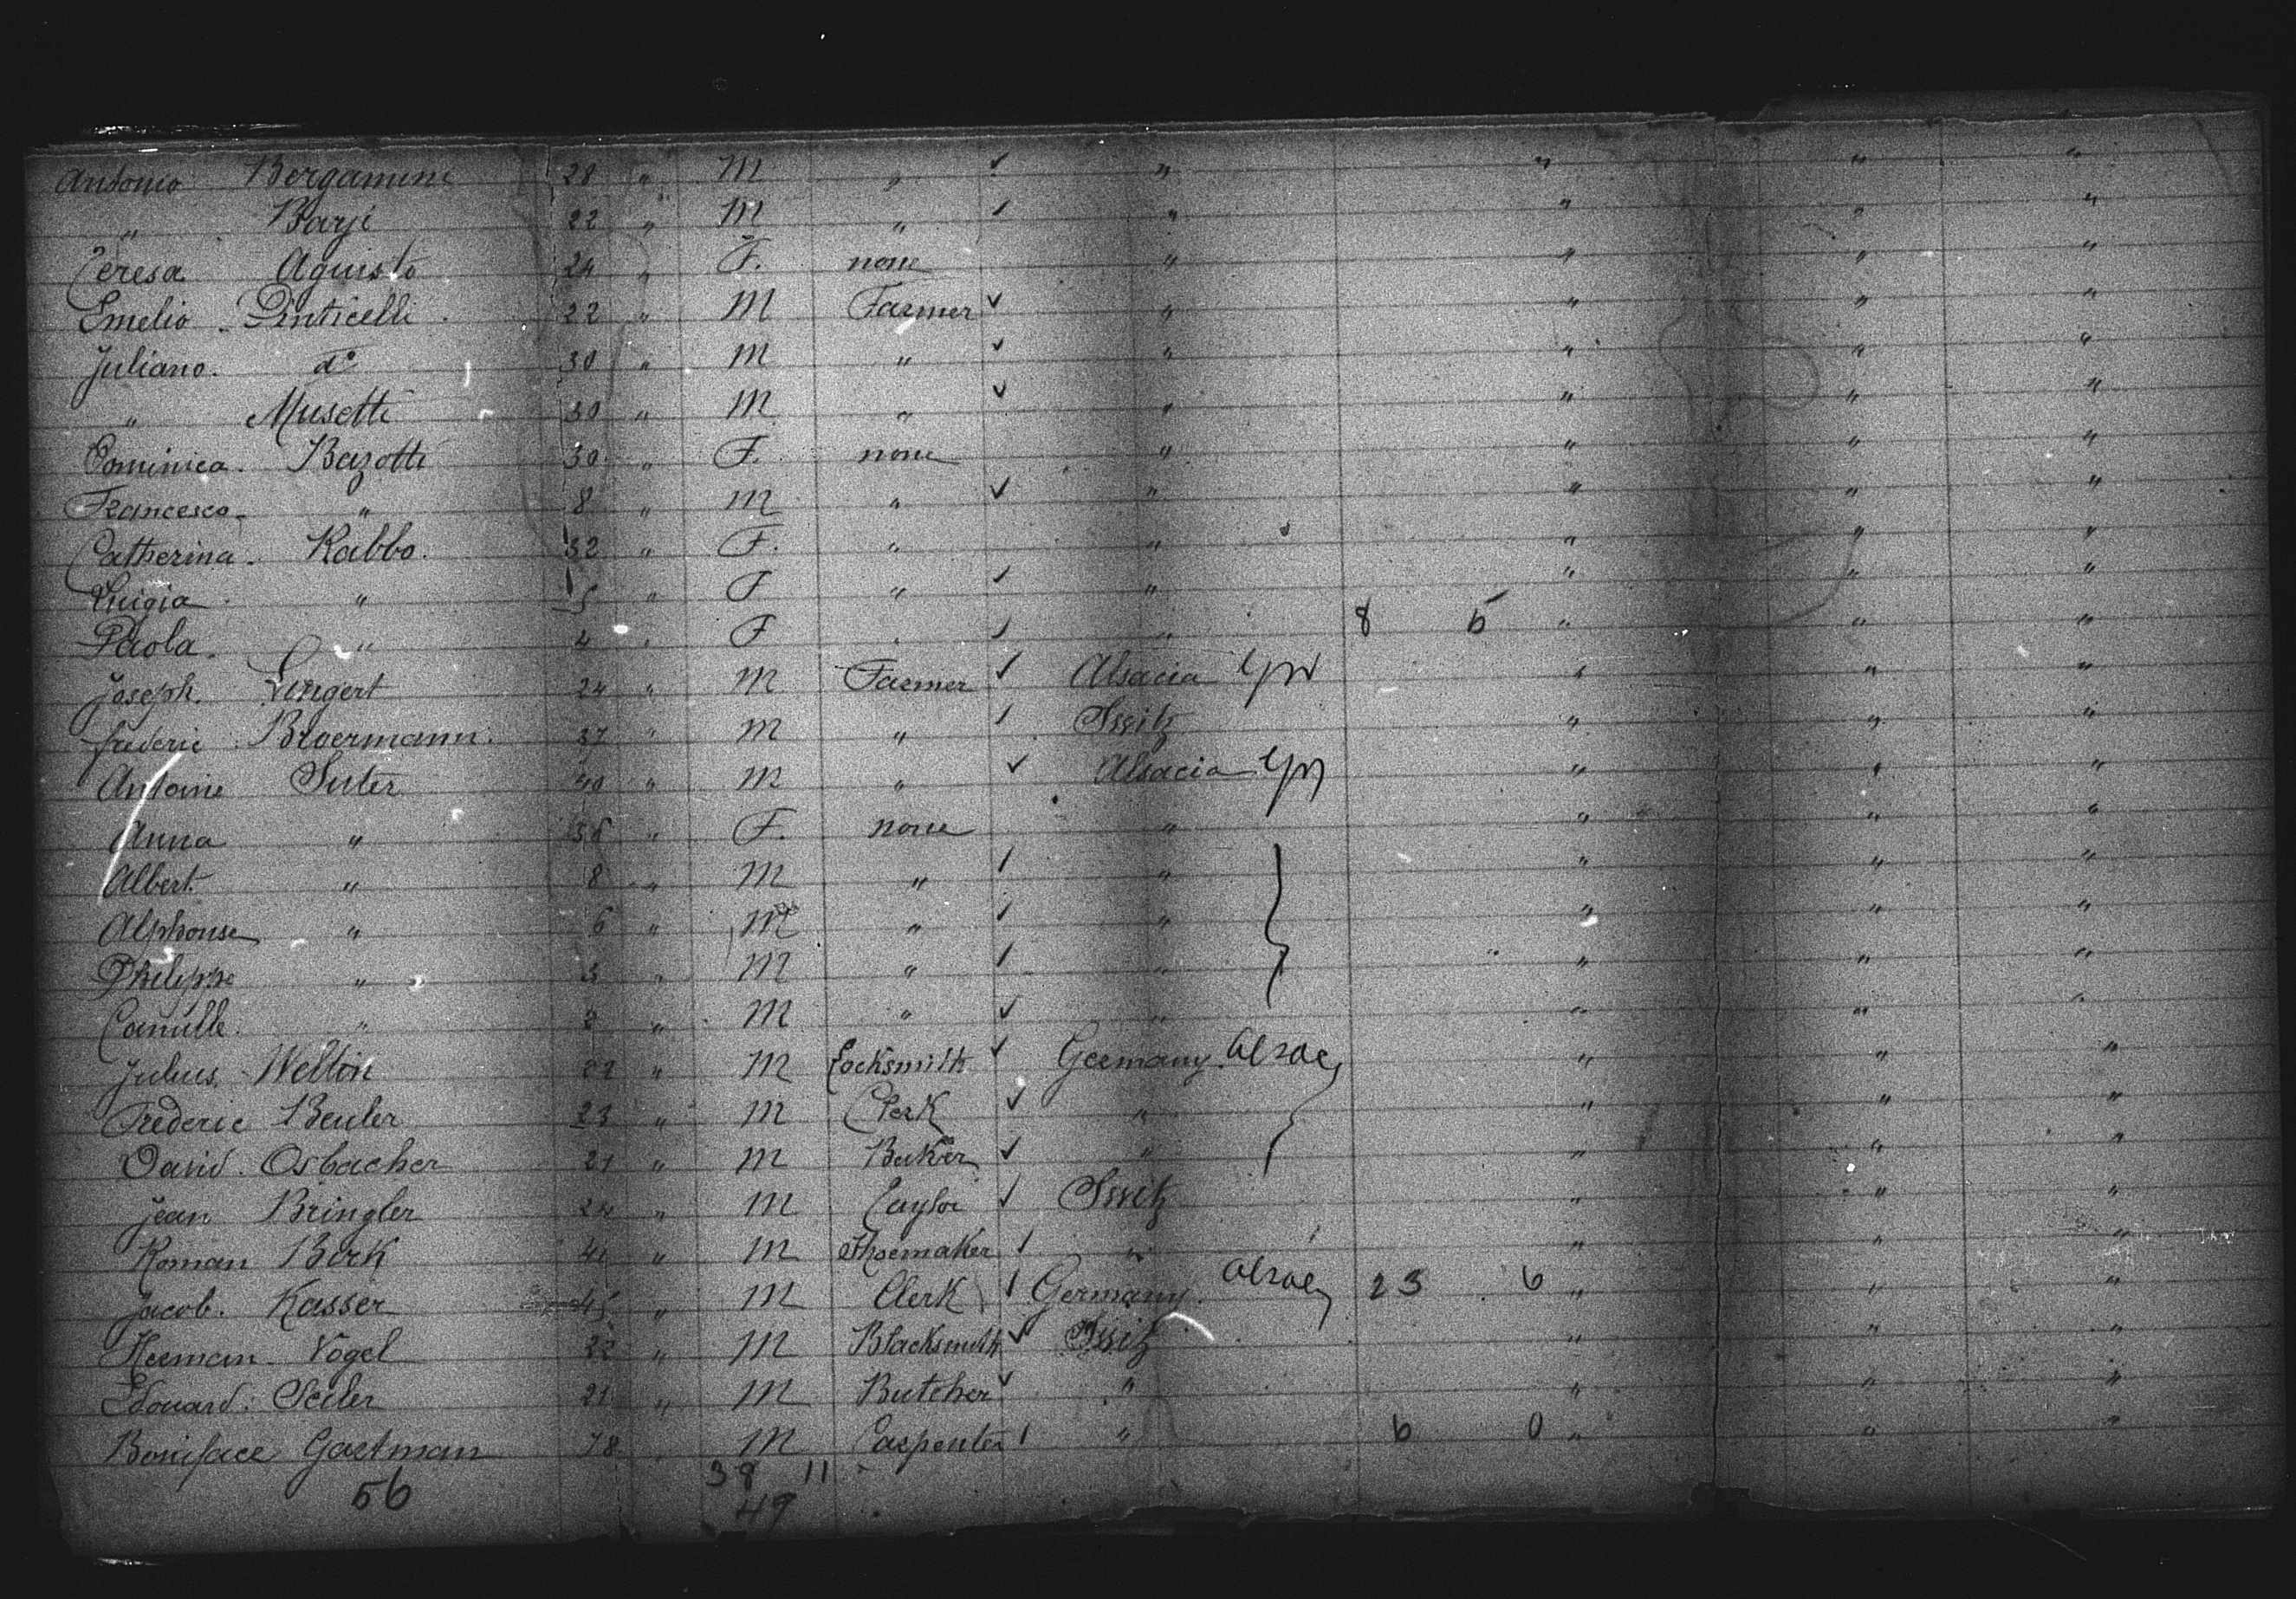 Antonio Bergamini 28 " M " ✓ " " " "
" Barji 22 " M " ✓ " " " "
Teresa Aguisto 24 " F. none " " " "
Emelio Pinticelli 22 " M Farmer ✓ " " " "
Juliano. do 30 " M " ✓ " " " "
" Musetti 30 " M " ✓ " " " "
Dominica. Bazotti 30 " F. none " " " "
Francesco " 8 " M " ✓ " " " "
Catherina. Rabbo. 32 " F. " " " " "
Luigia " 5 " F " ✓ " " " "
Paola. " 4 " F " ✓ " 8 5 " " "
Joseph. Lingert 24 " M Farmer ✓ Alsacia " " "
frederic Broermann. 37 " M " ✓ Switz " " "
Antoine Suter 40 " M " ✓ Alsacia " " "
Anna " 36 " F. none " " " "
Albert " 8 " M " ✓ " " " "
Alphonse " 6 " M " ✓ " " " "
Philippe " 3 " M " ✓ " " " "
Camille. " 2 " M " ✓ " " " "
Julius Weltin 22 " M Locksmith ✓ Germany. Alsac " " "
Frederic Beuler 23 " M Clerk ✓ " " " "
David. Osbacher 21 " M Baker ✓ " " " "
Jean Bringler 24 " M Taylor ✓ Switz " " "
Roman Birk " M Shoemaker ✓ " " " "
Jacob. Kasser 45 " M Clerk ✓ Germany. Alsac 23 6 " " "
Herman Vogel 22 " M Blacksmith ✓ Switz " " "
Edouard. Seiler 21 " M Butcher ✓ " " " "
Boniface Gartman 18 " M Carpenter ✓ " 6 0 " " "
56 38 11
49